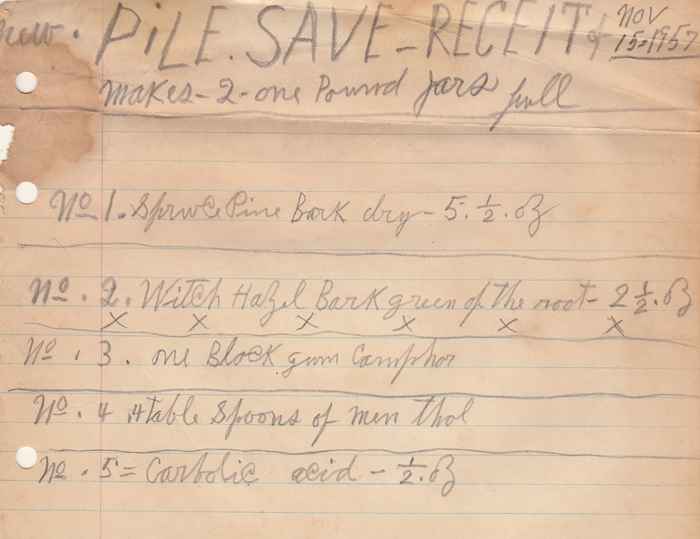 new. PiLE. SAVE - RECEIT of NOV
15-1957
Makes - 2 - one Pound Jars full
No 1. Spruce Pine Bark dry - 5. 1/2. oz
No. 2. Witch Hazel Bark green of the root - 2 1/2. oz
x x x x x x
No. 3. one Block gum Camphor
No. 4 .4 table Spoons of men thol
No. 5 = Carbolic acid - 1/2. oz